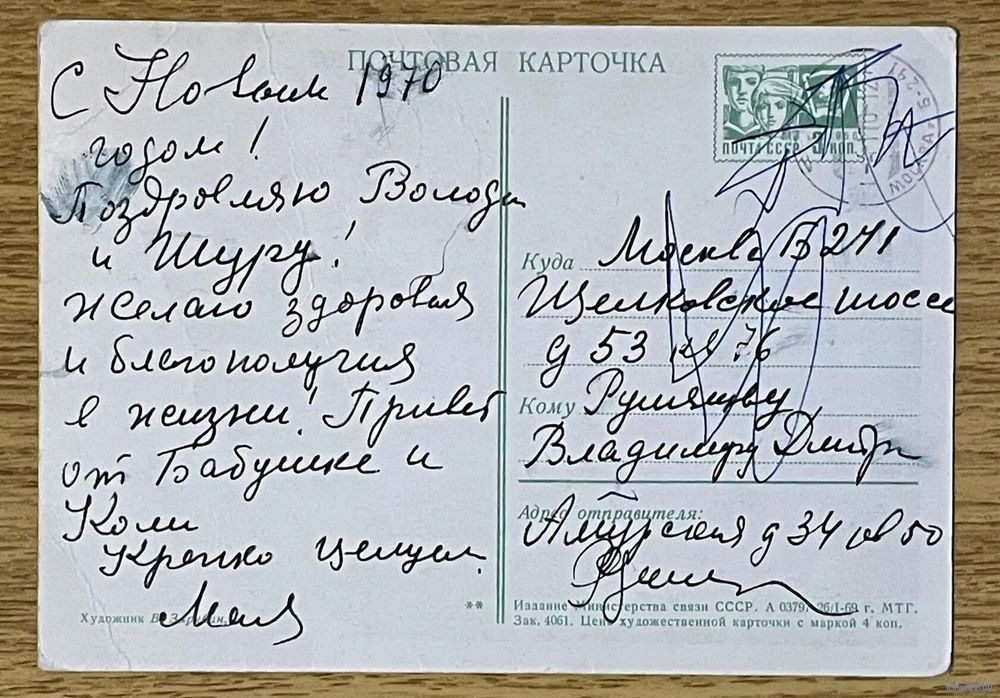 ПОЧТОВАЯ КАРТОЧКА
С Новым 1970
годом!
Поздравляю Володю
и Шуру!
Желаю здоровья
и благополучия
в жизни! Привет
от Бабушке и
Коли
Крепко целуем.
Художник В.
**
ПОЧТА СССР 3 КОП.
МОСКВА
Куда Москва Б 241
Щелковское шоссе
д 53 кв 76
Кому Румянцеву
Владимиру Дмитр
Адрес отправителя:
Амурская д 34 кв 50
Издание Министерства связи СССР. А 0379. 26/I-69 г. МТГ.
Зак. 4061. Цена художественной карточки с маркой 4 коп.